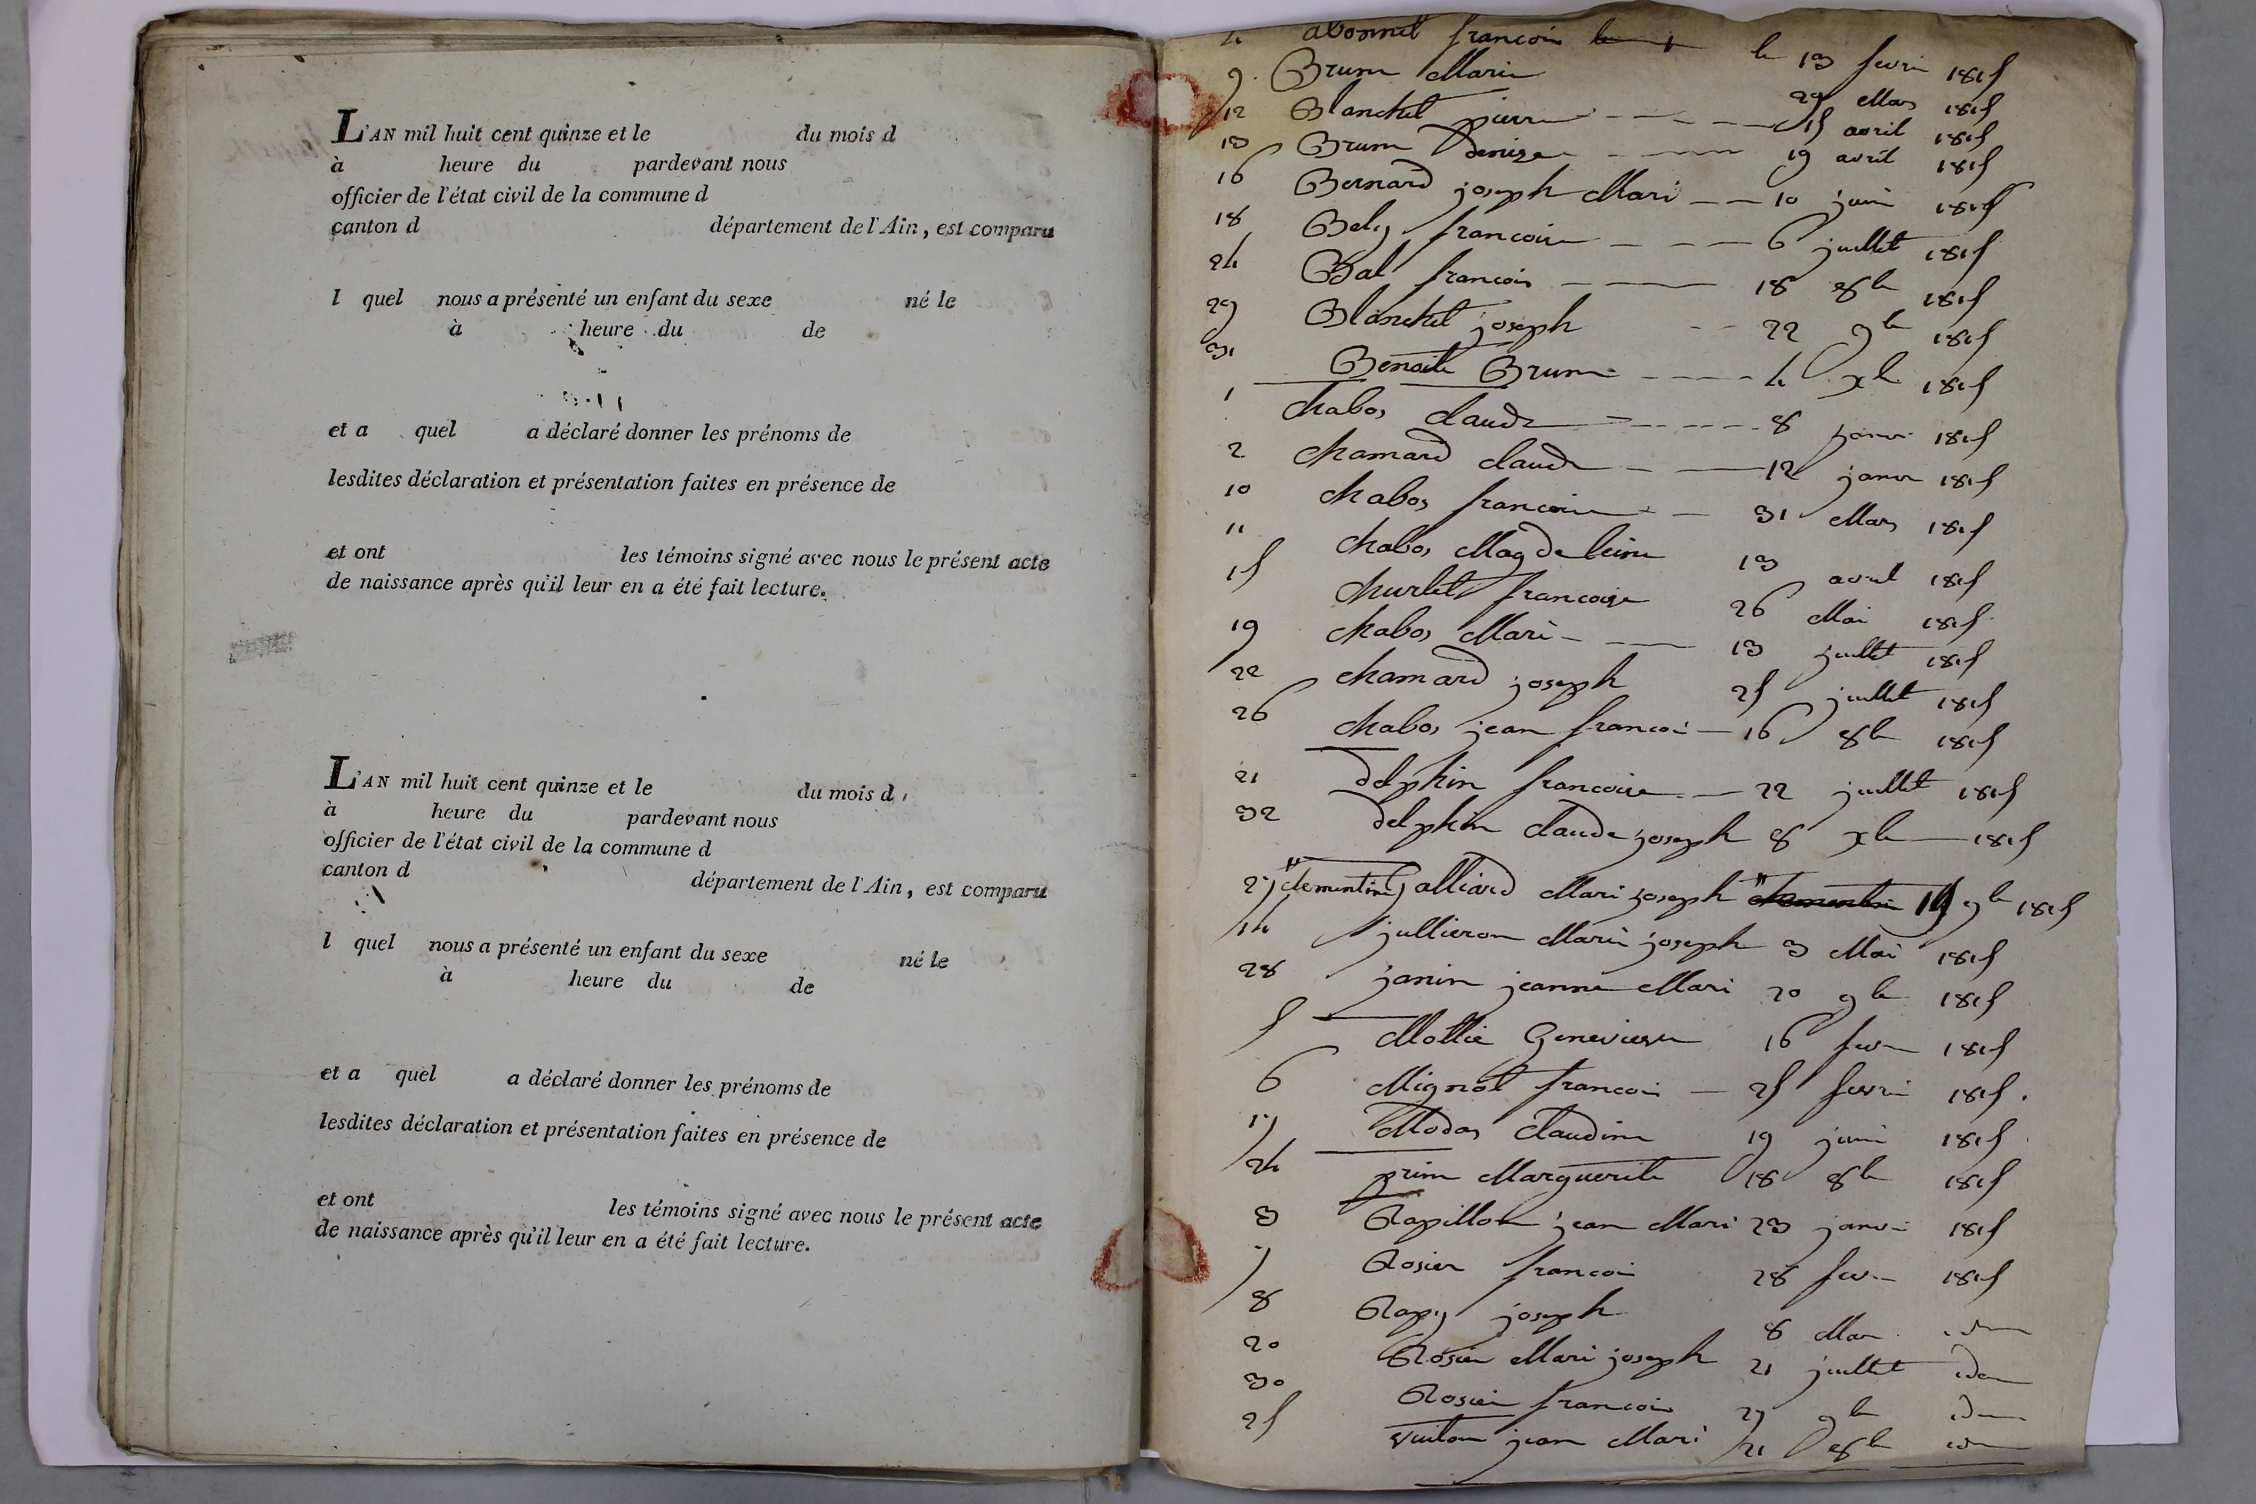 L'AN mil huit cent quinze et le du mois d
à heure du pardevant nous
officier de l'état civil de la commune d
canton d département de l'Ain, est comparu
l quel nous a présenté un enfant du sexe né le
à heure du de
et a quel a déclaré donner les prénoms de
lesdites déclaration et présentation faites en présence de
et ont les témoins signé avec nous le présent acte
de naissance après qu'il leur en a été fait lecture.
L'AN mil huit cent quinze et le du mois d
à heure du pardevant nous
officier de l'état civil de la commune d
canton d département de l'Ain, est comparu
l quel nous a présenté un enfant du sexe né le
à heure du de
et a quel a déclaré donner les prénoms de
lesdites déclaration et présentation faites en présence de
et ont les témoins signé avec nous le présent acte
de naissance après qu'il leur en a été fait lecture.
4 abonnel francois le 13 fevri 1815
9. Brun Marie 29 Mars 1815
12 Blanchet pierre 15 avril 1815
13 Brun Denize 19 avril 1815
16 Bernard joseph Mari 10 juin 1815
18 Bely francoise 6 juillet 1815
24 Bal francois 18 8b 1815
29 Blanchet joseph 22 9b 1815
31 Benoite Brun 4 xb 1815
1 chabos claude 8 janvi 1815
2 chamard claude 12 janvi 1815
10 chabos francoise 31 Mars 1815
11 chabos Magdeleine 13 avril 1815
15 churlet francoise 26 Mai 1815
19 chabos Marie 13 juillet 1815
22 chamard joseph 25 juillet 1815
26 chabos jean francoi 16 8b 1815
21 delphin francoise 22 juillet 1815
32 delphin claude joseph 8 xb 1815
27 clementine galliard Mari joseph 14 9b 1815
14 jullieron Marie joseph 3 Mai 1815
28 janin jeanne Mari 20 9b 1815
5 Mollie Genevieve 16 fev 1815
6 Mignot francoi 25 fevri 1815.
17 Modas claudine 19 juin 1815
24 prin Marguerite 18 8b 1815
3 Rapillon jean Mari 23 janvi 1815
7 Rosier francoi 28 fev 1815
8 Rapy joseph 8 Mar idem
20 Rosier Mari joseph 21 juillet idem
30 Rosier francois 27 9b idem
25 vuiton jean Mari 21 8b idem